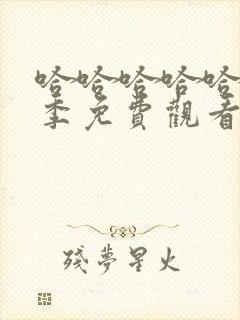 哈哈哈哈哈
季免費觀看
殘夢星火